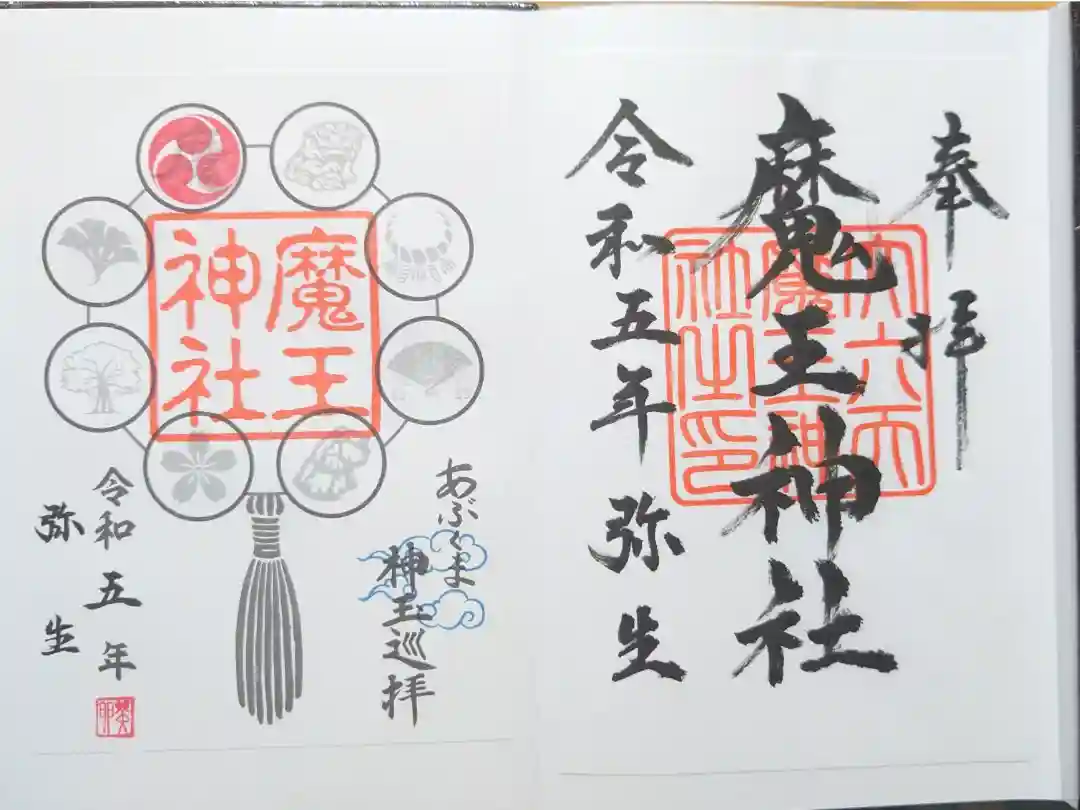 奉拝
魔王神社
大六天
魔王神
社之印
令和五年 弥生
あぶくま
神玉巡拝
魔王
神社
令和五年
弥生